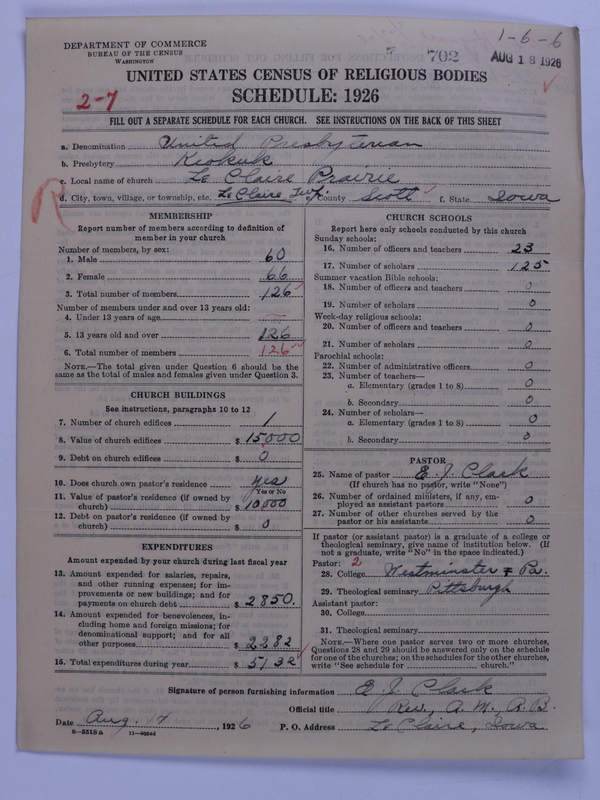 1-6-6
DEPARTMENT OF COMMERCE
BUREAU OF THE CENSUS
WASHINGTON
702
AUG 18 1926
UNITED STATES CENSUS OF RELIGIOUS BODIES
2-7
SCHEDULE: 1926
FILL OUT A SEPARATE SCHEDULE FOR EACH CHURCH. SEE INSTRUCTIONS ON THE BACK OF THIS SHEET
a. Denomination United Presbyterian
b. Presbytery Keokuk
c. Local name of church Le Claire Prairie
d. City, town, village, or township, etc. Le Claire Twp. e. County Scott f. State Iowa
R
MEMBERSHIP
Report number of members according to definition of
member in your church
Number of members, by sex:
1. Male 60
2. Female 66
3. Total number of members 126
Number of members under and over 13 years old:
4. Under 13 years of age
5. 13 years old and over 126
6. Total number of members 126
NOTE.—The total given under Question 6 should be the
same as the total of males and females given under Question 3.
CHURCH BUILDINGS
See instructions, paragraphs 10 to 12
7. Number of church edifices 1
8. Value of church edifices $ 15000
9. Debt on church edifices $ 0
10. Does church own pastor's residence yes
Yes or No
11. Value of pastor's residence (if owned by
church) $ 10000
12. Debt on pastor's residence (if owned by
church) $ 0
EXPENDITURES
Amount expended by your church during last fiscal year
13. Amount expended for salaries, repairs,
and other running expenses; for im-
provements or new buildings; and for
payments on church debt $ 2850.
14. Amount expended for benevolences, in-
cluding home and foreign missions; for
denominational support; and for all
other purposes $ 2282
15. Total expenditures during year $ 5132
CHURCH SCHOOLS
Report here only schools conducted by this church
Sunday schools:
16. Number of officers and teachers 23
17. Number of scholars 125
Summer vacation Bible schools:
18. Number of officers and teachers 0
19. Number of scholars 0
Week-day religious schools:
20. Number of officers and teachers 0
21. Number of scholars 0
Parochial schools:
22. Number of administrative officers 0
23. Number of teachers—
a. Elementary (grades 1 to 8) 0
b. Secondary 0
24. Number of scholars—
a. Elementary (grades 1 to 8) 0
b. Secondary 0
PASTOR
25. Name of pastor E. J. Clark
(If church has no pastor, write "None")
26. Number of ordained ministers, if any, em-
ployed as assistant pastors 0
27. Number of other churches served by the
pastor or his assistants 0
If pastor (or assistant pastor) is a graduate of a college or
theological seminary, give name of institution below. (If
not a graduate, write "No" in the space indicated.)
Pastor: 2
28. College Westminster Pa.
29. Theological seminary Pittsburgh
Assistant pastor:
30. College
31. Theological seminary
NOTE.—Where one pastor serves two or more churches,
Questions 28 and 29 should be answered only on the schedule
for one of the churches; on the schedules for the other churches,
write "See schedule for church."
Signature of person furnishing information E. J. Clark
Official title Rev., A. M. A. B.
Date Aug. 14, 1926 P. O. Address Le Claire, Iowa
8-5518a